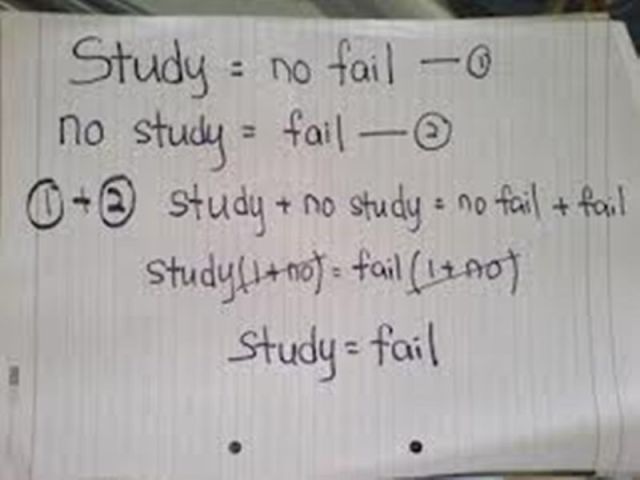 Study = no fail — ①
no study = fail — ②
① + ② study + no study = no fail + fail
study(1+no) = fail(1+no)
study = fail